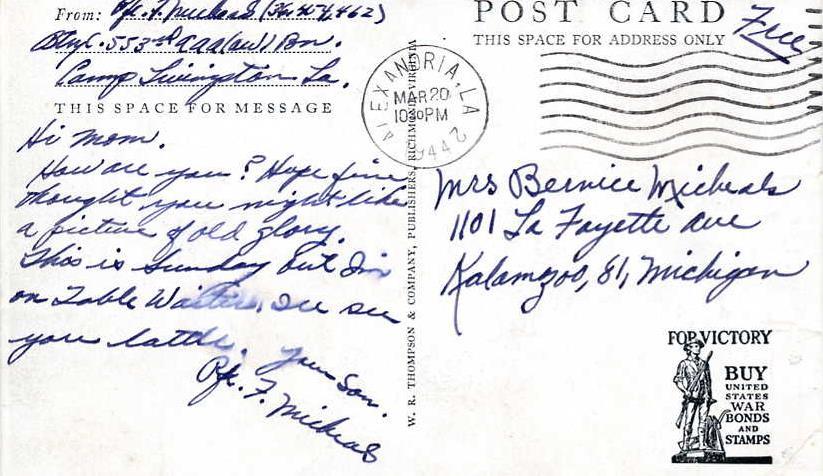 From: Pfc. F. Micheals (36454,462)
Btry C. 553rd AAA (aw) Bn.
Camp Livingston La.
THIS SPACE FOR MESSAGE
Hi Mom.
How are you? Hope fine
thought you might like
a picture of old glory.
This is Sunday but I'm
on Table Waiters. I'll see
you latter. Your Son.
Pfc. F. Micheals
W. R. THOMPSON & COMPANY, PUBLISHERS, RICHMOND, VIRGINIA
POST CARD
THIS SPACE FOR ADDRESS ONLY
Free
ALEXANDRIA, LA
MAR 20
1030 PM
1944
2
Mrs Bernice Micheals
1101 La Fayette ave
Kalamzoo, 81, Michigan
FOR VICTORY
BUY
UNITED
STATES
WAR
BONDS
AND
STAMPS